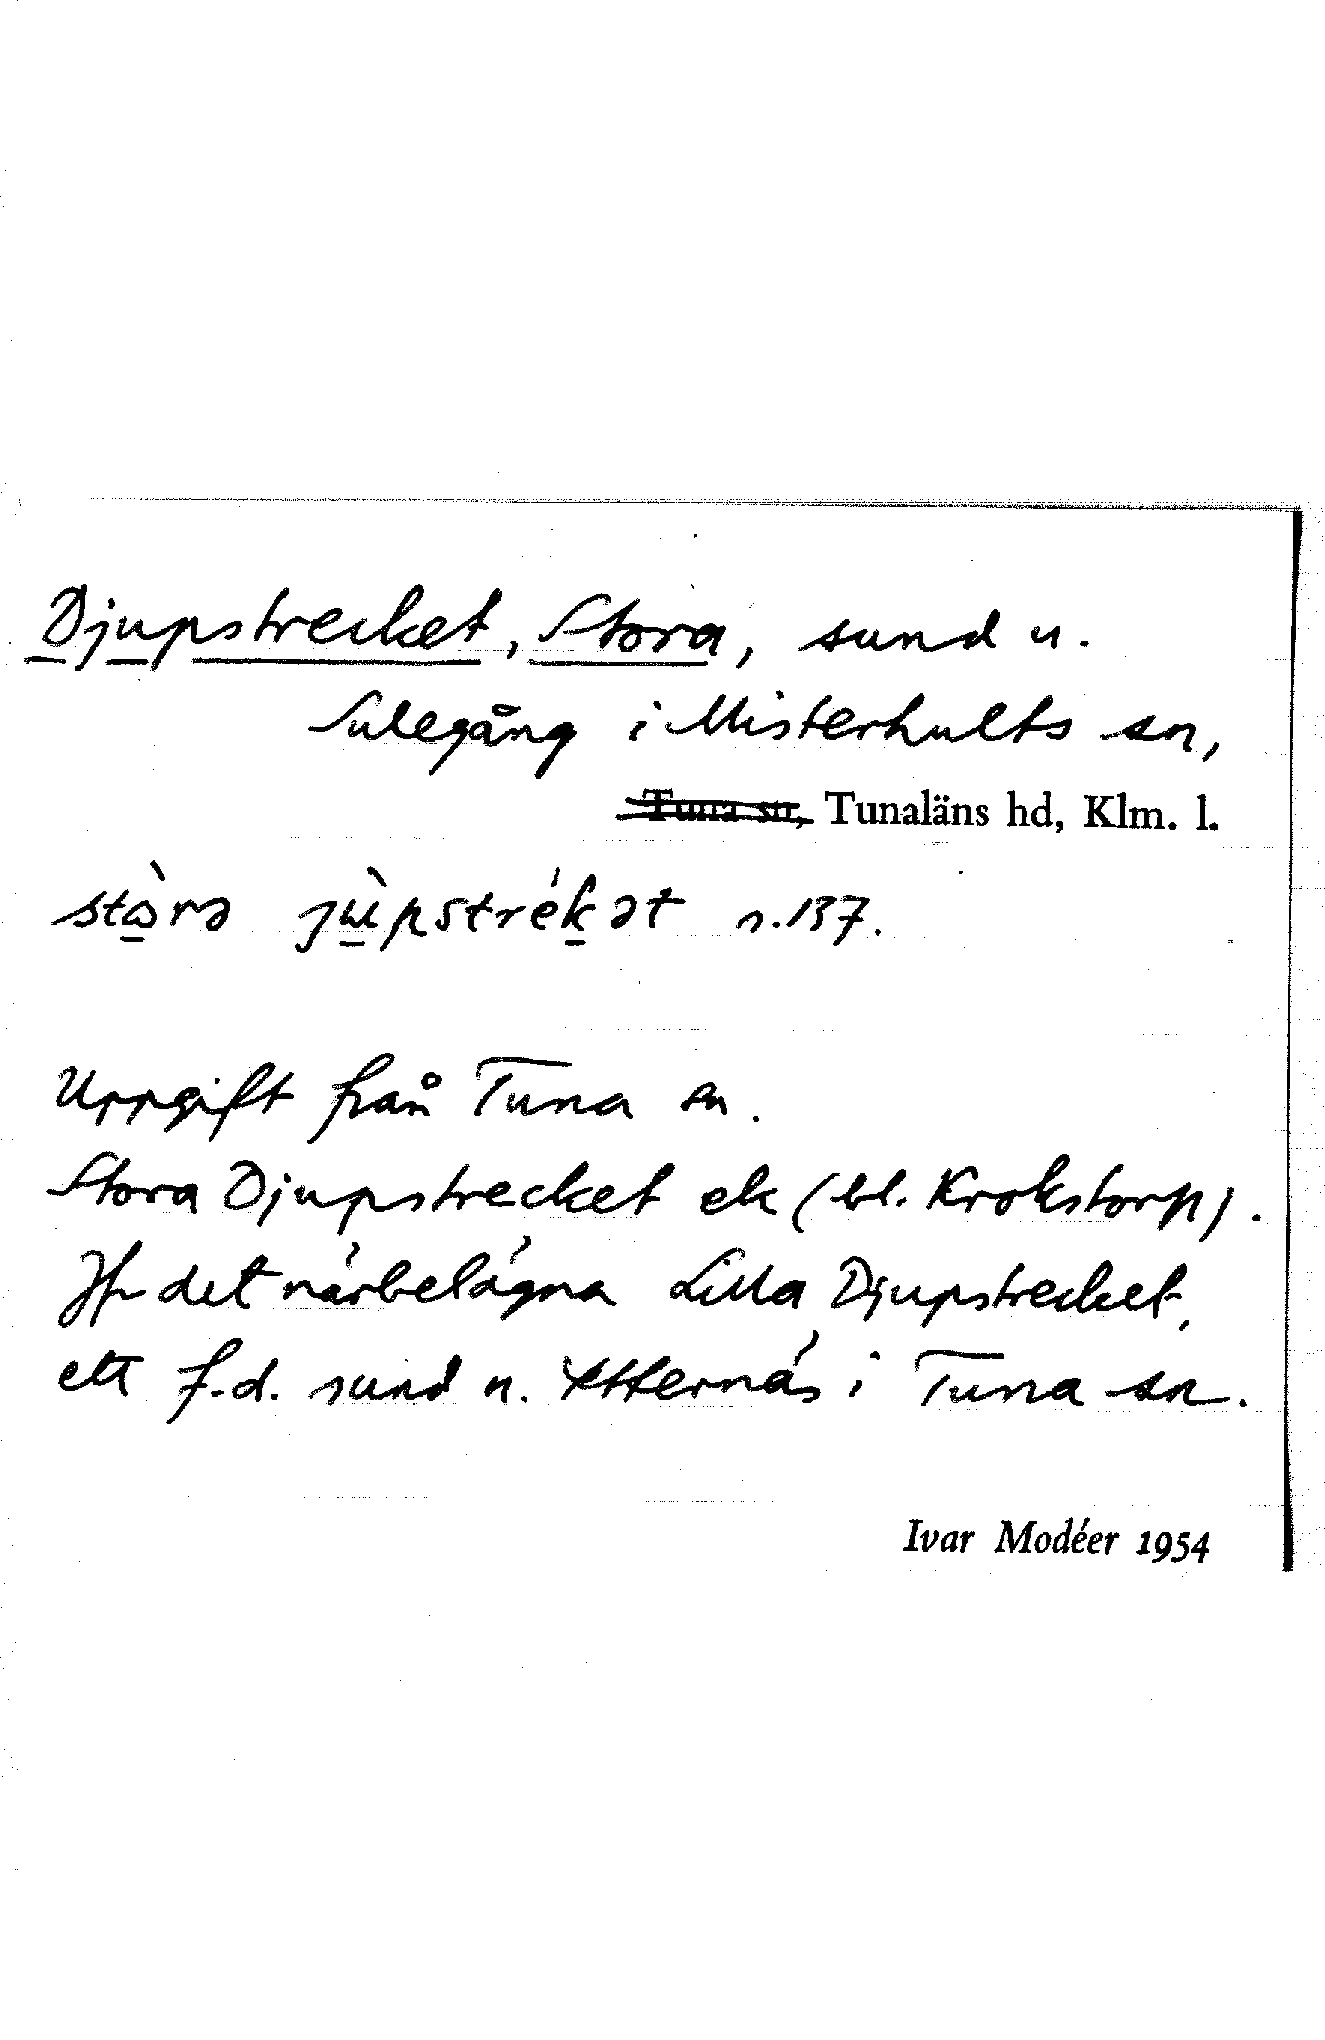 Djupstrecket, Stora, sund n.
Sulegång i Misterhults sn,
Tuna sn, Tunaläns hd, Klm. l.
n.137.
Uppgift från Tuna sn.
Stora Djupstrecket ek (bl. Krokstorp).
Jfr det närbelägna Lilla Djupstrecket,
ett f.d. sund n. Ytternäs i Tuna sn.
Ivar Modéer 1954